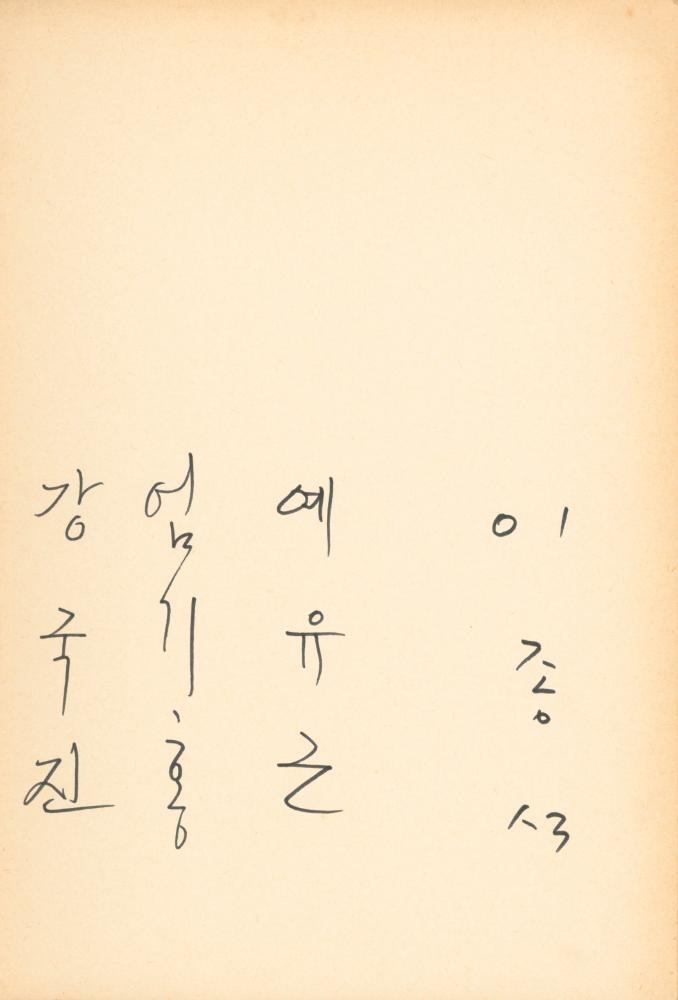 강국진
엄기홍
예유근
이종석